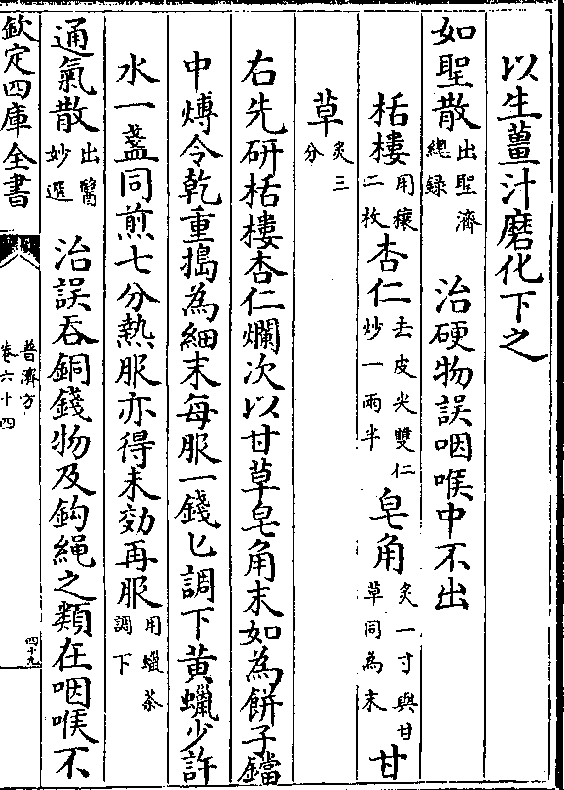 以生薑汁磨化下之
如聖散出聖濟總録　治硬物誤咽喉中不出
栝樓用穰二枚杏仁去皮尖雙仁炒一兩半皂角炙一寸與甘草同為末甘
草炙三分
右先研栝樓杏仁爛次以甘草皂角末如為餅子鐺
中煿令乾重搗為細末每服一錢匕調下黃蠟少許
水一盞同煎七分熱服亦得未効再服用蠟茶調下
通氣散出醫妙選　治誤吞銅錢物及鈎繩之類在咽喉不
欽定四庫全書
普濟方
卷六十四
四十九